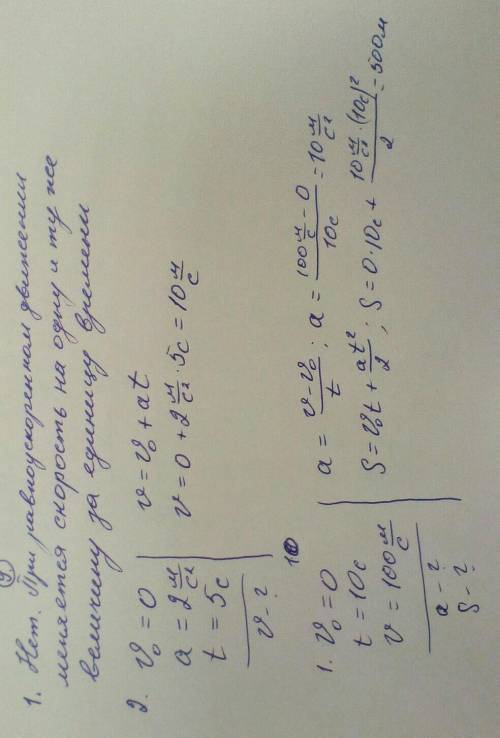 9
1. Нет. При равноускоренном движении
меняется скорость на одну и ту же
величину за единицу времени
2. v₀ = 0
a = 2 м/с²
t = 5с
v - ?
v = v₀ + at
v = 0 + 2 м/с² · 5с = 10 м/с
10
1. v₀ = 0
t = 10с
v = 100 м/с
a - ?
S - ?
a = (v - v₀)/t ; a = (100 м/с - 0)/10с = 10 м/с²
S = v₀t + at²/2 ; S = 0 · 10с + (10 м/с² · (10с)²)/2 = 500 м